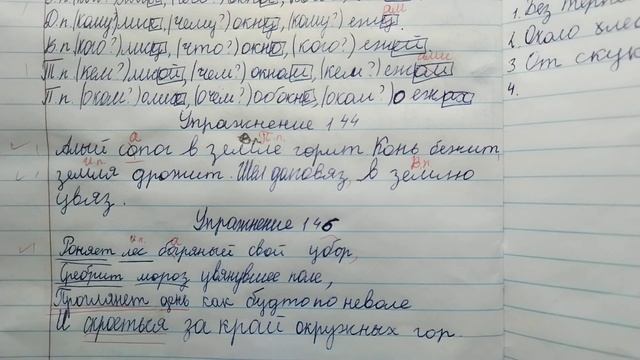 Д.п. (кому?) лисе, (чему?) окну, (кому?) ежу
ам
В.п. (кого?) лису, (что?) окно, (кого?) ежей
Т.п. (кем?) лисой, (чем?) окном, (кем?) ежами
П.п. (о ком?) о лисе, (о чём?) об окне, (о ком?) о ежах
Упражнение 144
Алый сапог в земле горит. Конь бежит,
земля дрожит. Шёл долговяз, в землю
увяз.
Упражнение 146
Роняет лес багряный свой убор,
Сребрит мороз увянувшее поле,
Проглянет день как будто по неволе
И скроеться за край окружных гор.
1. Без
2. Около
3. От скук
4.